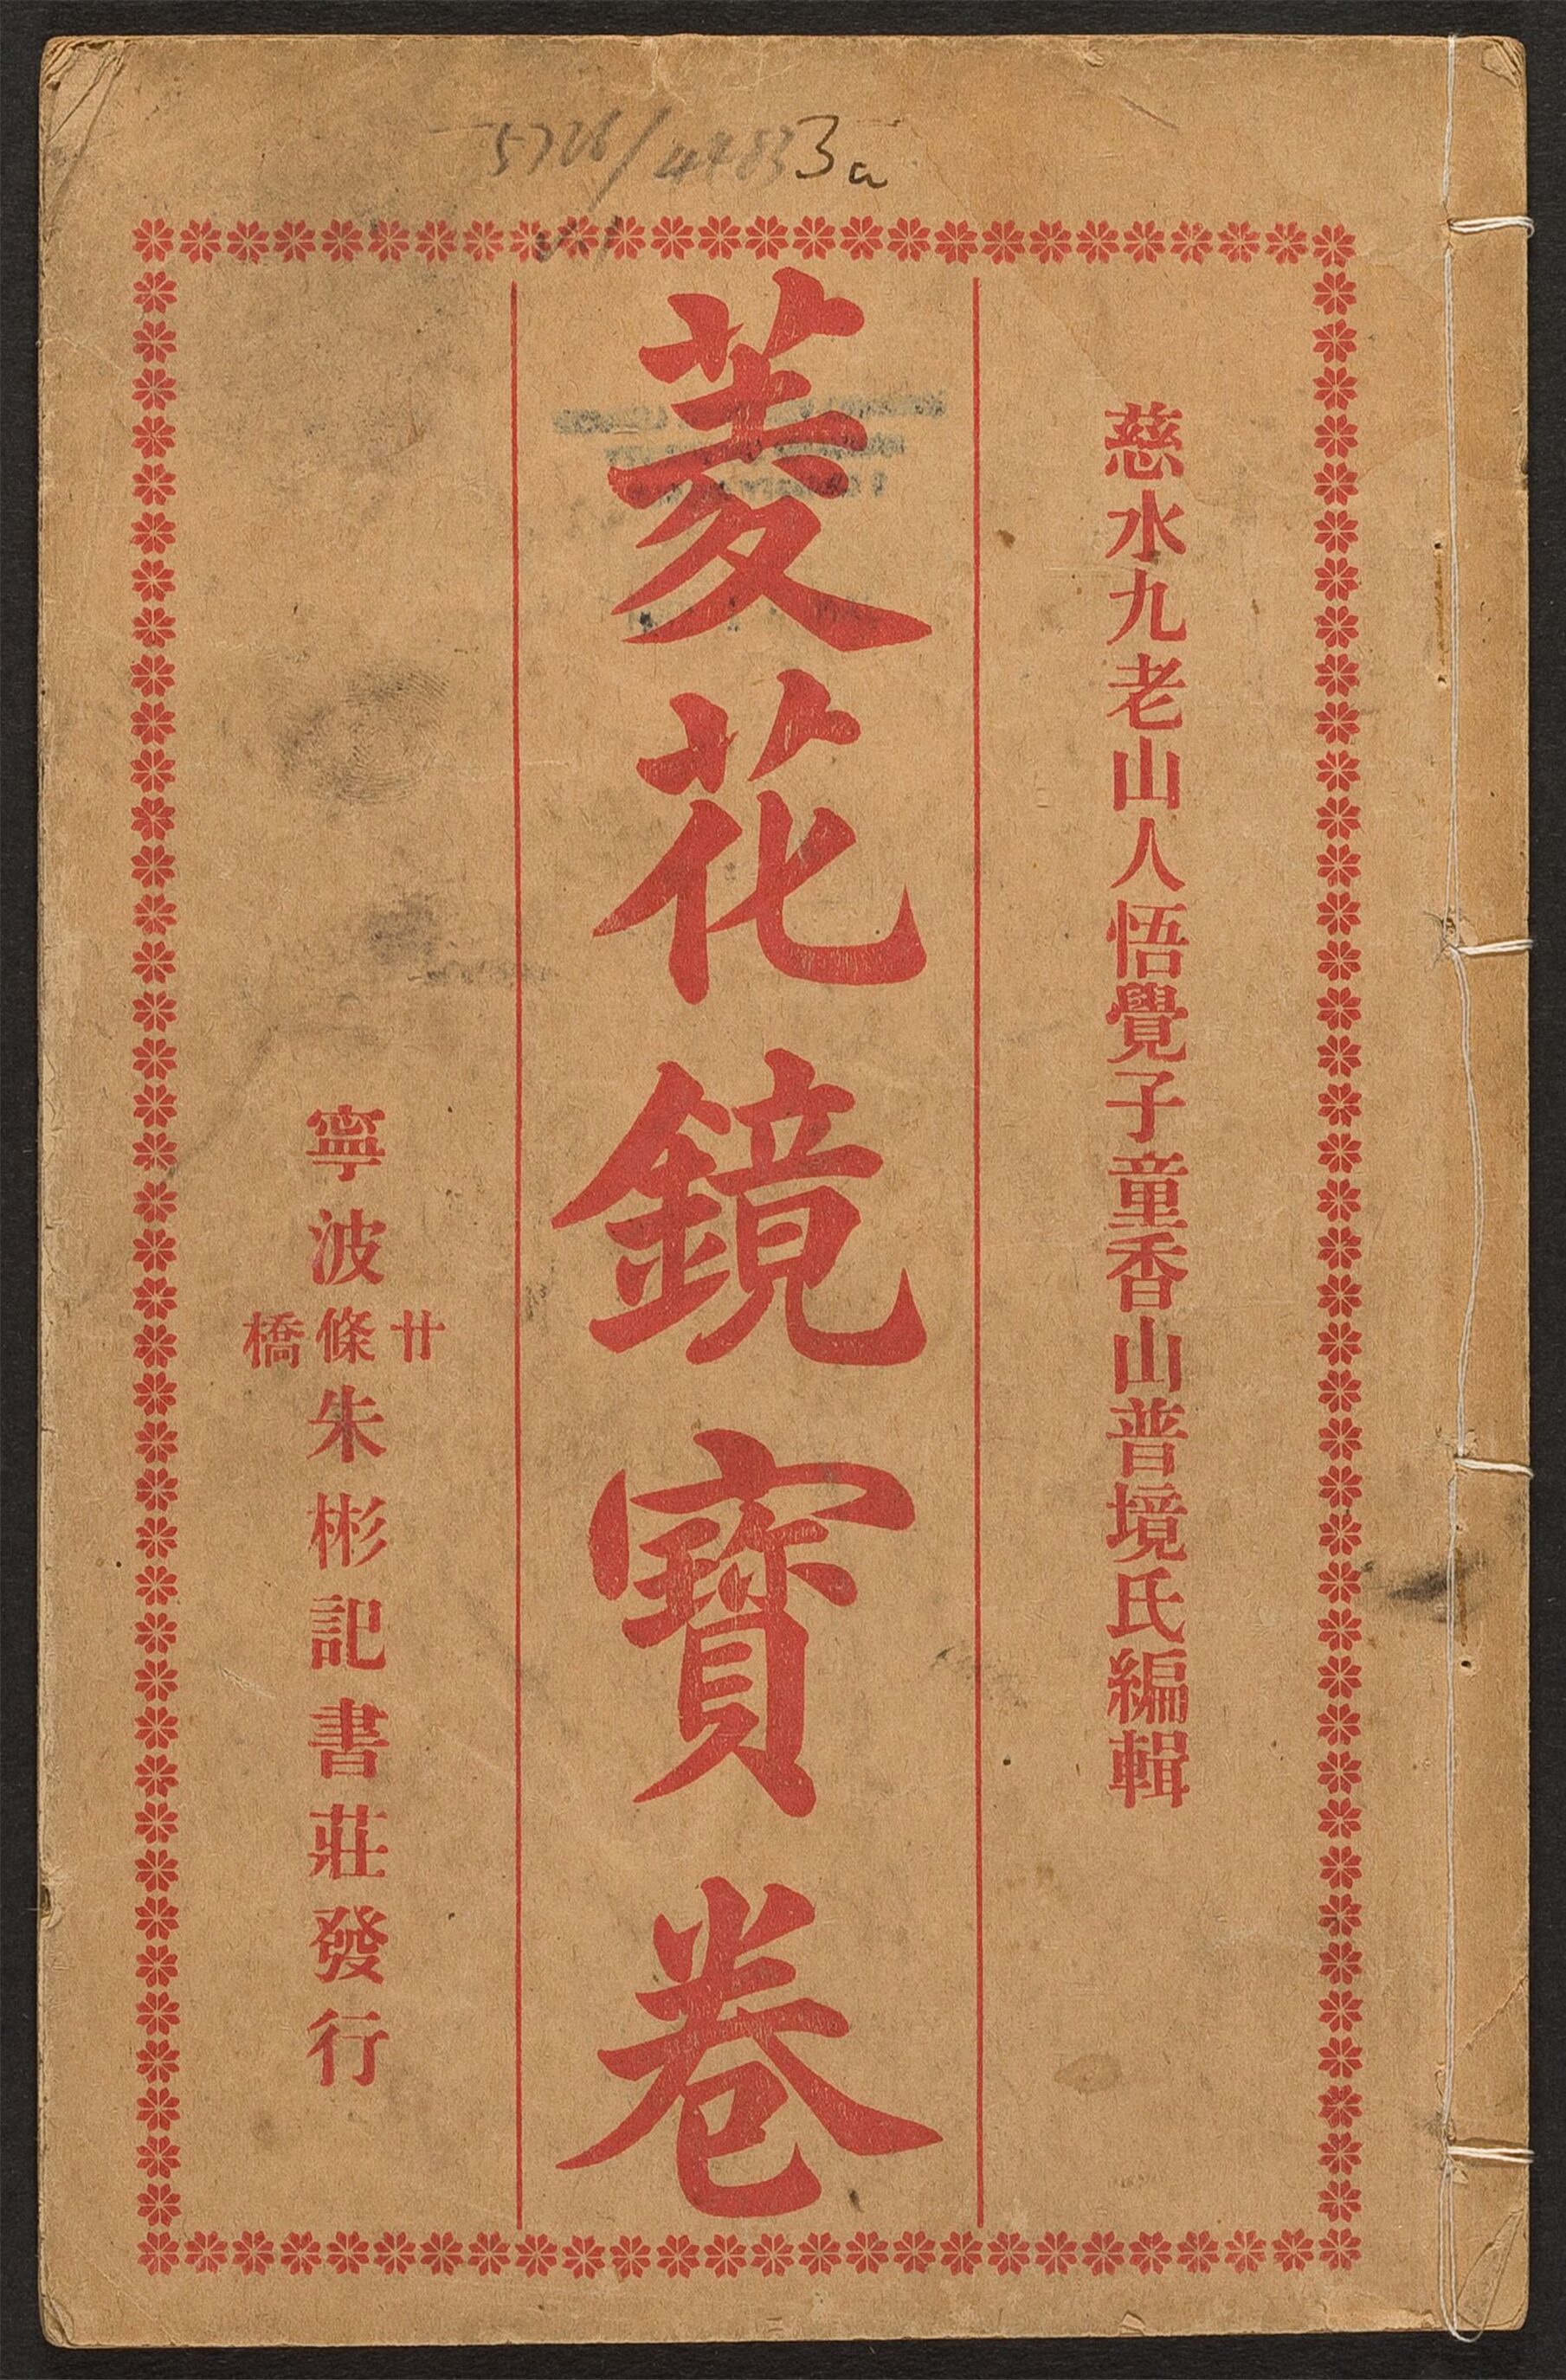 3a
慈水九老山人悟覺子童香山普境氏編輯
菱花鏡寶卷
寧波廿條橋朱彬記書莊發行